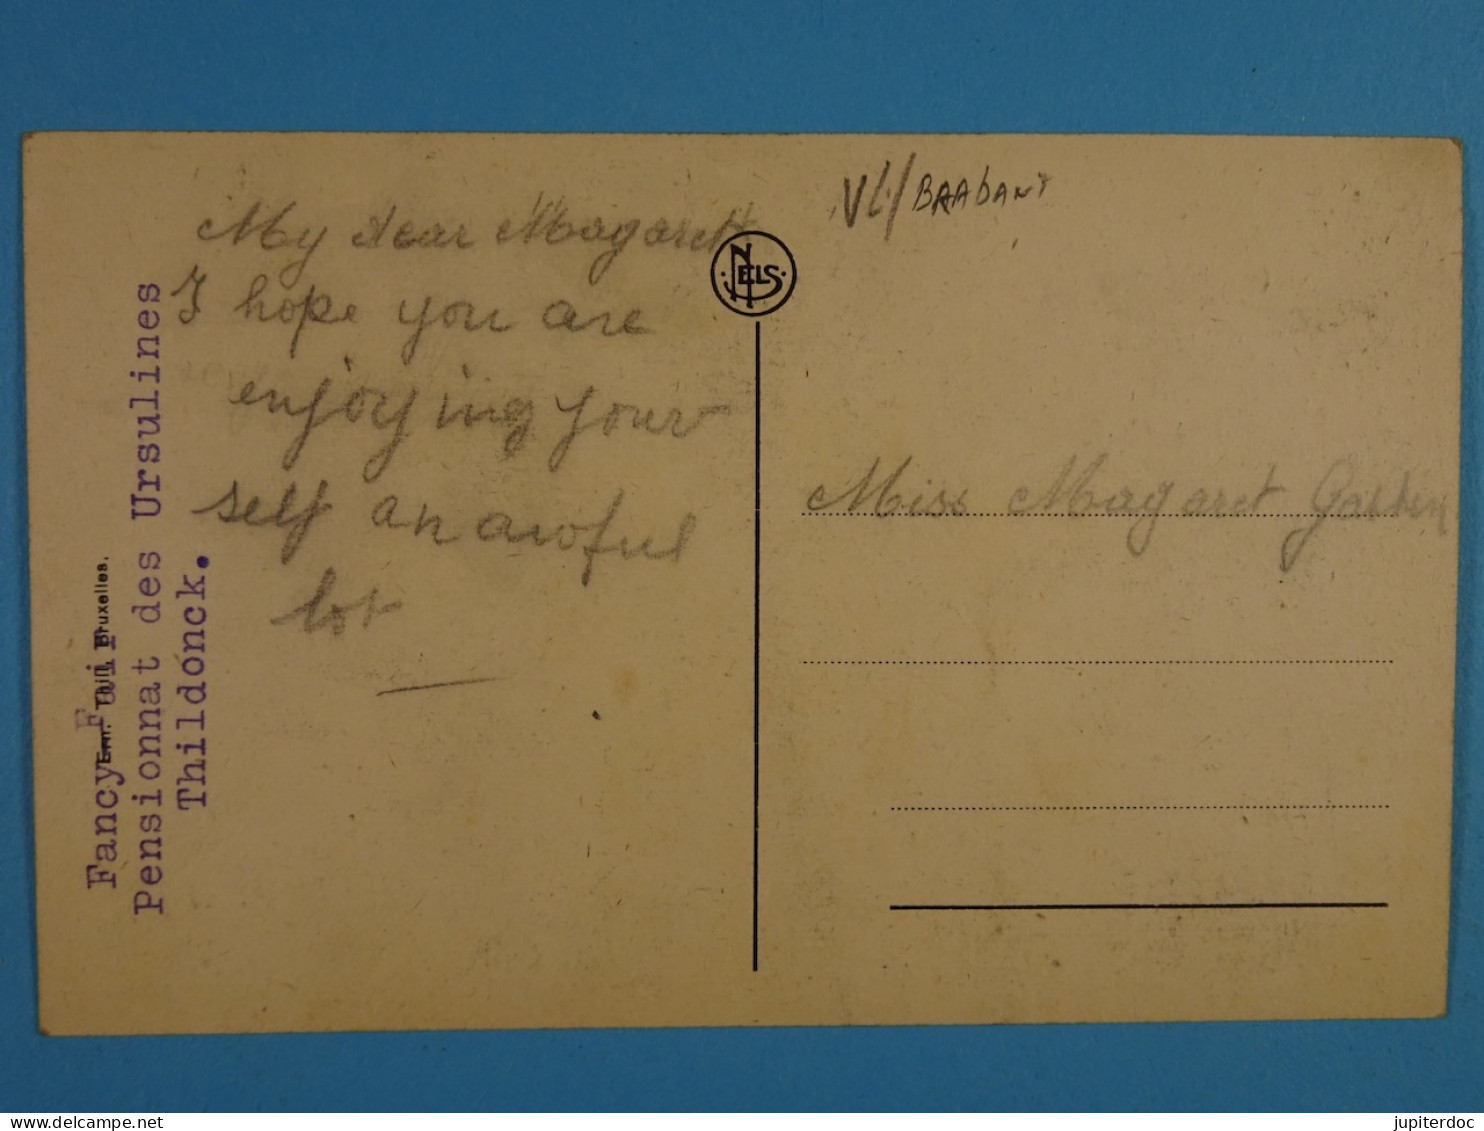 My dear Magaret
I hope you are
enjoying your
self an awful
lot
VL/BRABANT
NELS
Miss Magaret
Fancy Fair
Pensionnat des Ursulines
Thildonck.
Ern. Thill, Bruxelles.
delcampe.net
jupiterdoc